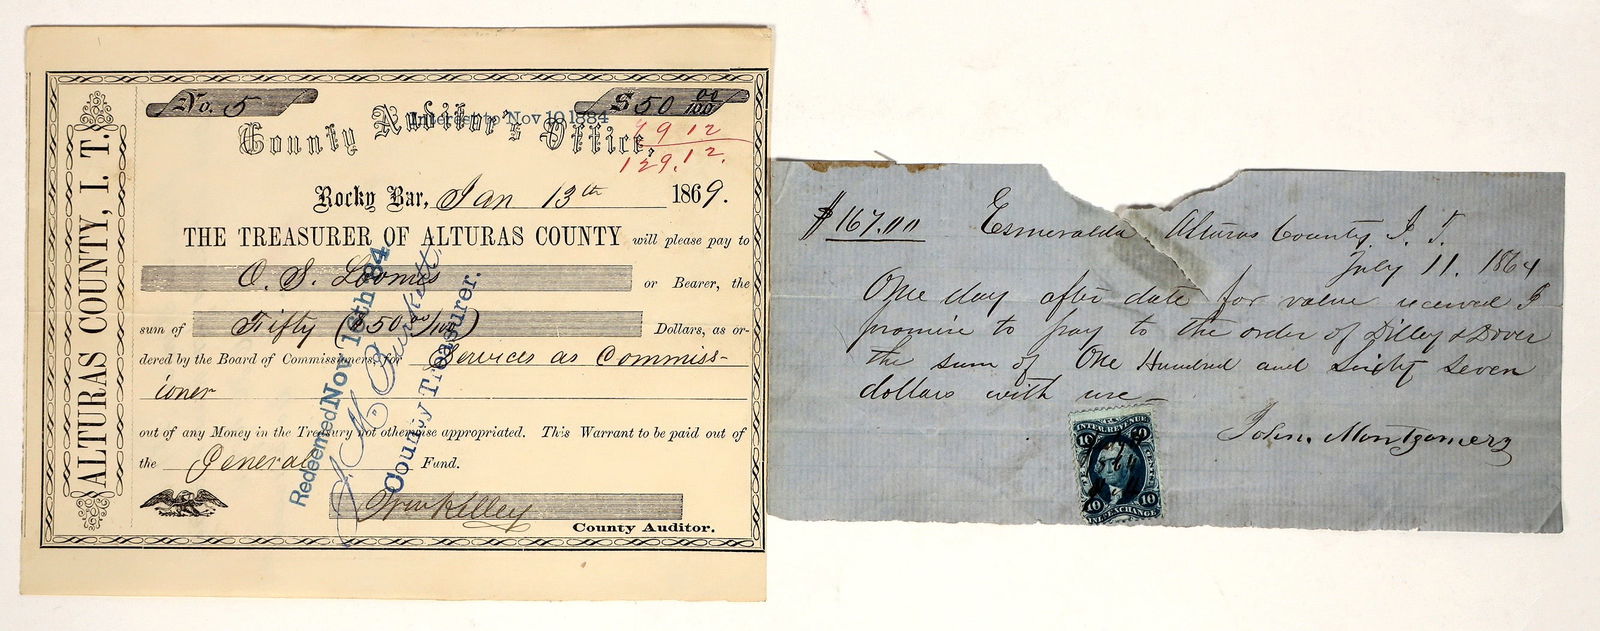 ALTURAS COUNTY, I. T.
No. 5
$50 00/100
Interest to Nov 10 1884
79 12
129.12.
County Auditor's Office,
Rocky Bar, Jan 13th 1869.
THE TREASURER OF ALTURAS COUNTY will please pay to
O. S. Loomis or Bearer, the
sum of Fifty ($50 00/100) Dollars, as or-
dered by the Board of Commissioners, for Services as Commiss-
ioner
out of any Money in the Treasury not otherwise appropriated. This Warrant to be paid out of
the General Fund.
County Auditor.
Redeemed Nov 16th 84
County Treasurer.
$167.00 Esmeralda Alturas County, I. T.
July 11. 1864
One day after date for value received I
promise to pay to the order of Dilley & Dover
the sum of One Hundred and Sixty Seven
dollars with use
John. Montgomery
INTER. REVENUE
10 10
CENTS
10 10
INL. EXCHANGE